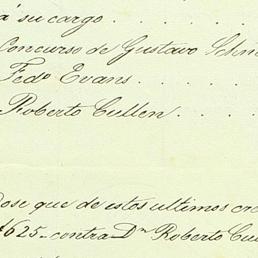 á su cargo . . . .
Concurso de Gustavo
Fedo Evans . . . .
Roberto Cullen . . .
dose que de estos ultimos
1625 - contra Dn Roberto